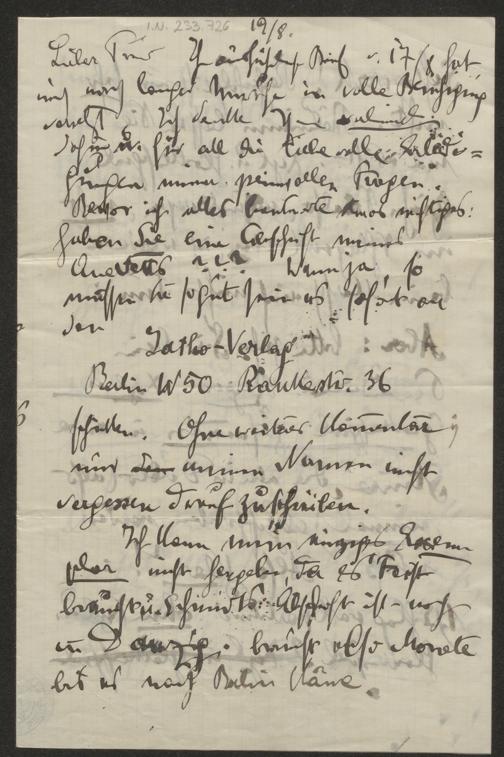 I.N. 233.726
19/8.
Lieber Ihr ausführlicher Brief v. 17/8 hat
mich nach langer in volle Beruhigung
versetzt. Ich danke Ihnen
für all die liebevolle Erledi=
gungen meiner peinvollen Fragen.
Bevor ich alles beantworte etwas wichtiges:
haben Sie eine Abschrift meines
Quartetts ??? Wenn ja, so
müssen Sie so gut sein es sofort an
den
Jatho-Verlag
Berlin W 50 Rankestr. 36
schicken. Ohne weiteren Kommentar;
nur meinen Namen nicht
vergessen drauf zuschreiben.
Ich kann mein einziges Exem
plar nicht hergeben, da es
braucht u. Schmidts Abschrift ist noch
in Danzig. braucht also Monate
bis es nach Berlin käme.